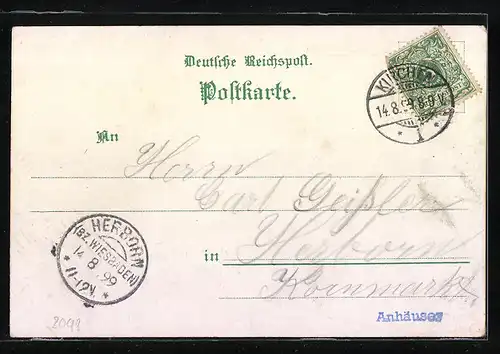 Deutsche Reichspost.
Postkarte.
KIRCHEN
14.8.99.8-9V.
* 1 *
An
Herrn
Carl Geißler
in Herborn
Kornmarkt
HERBORN
(BZ. WIESBADEN)
14 8 99
* 11-12V. *
2091
Anhäuser